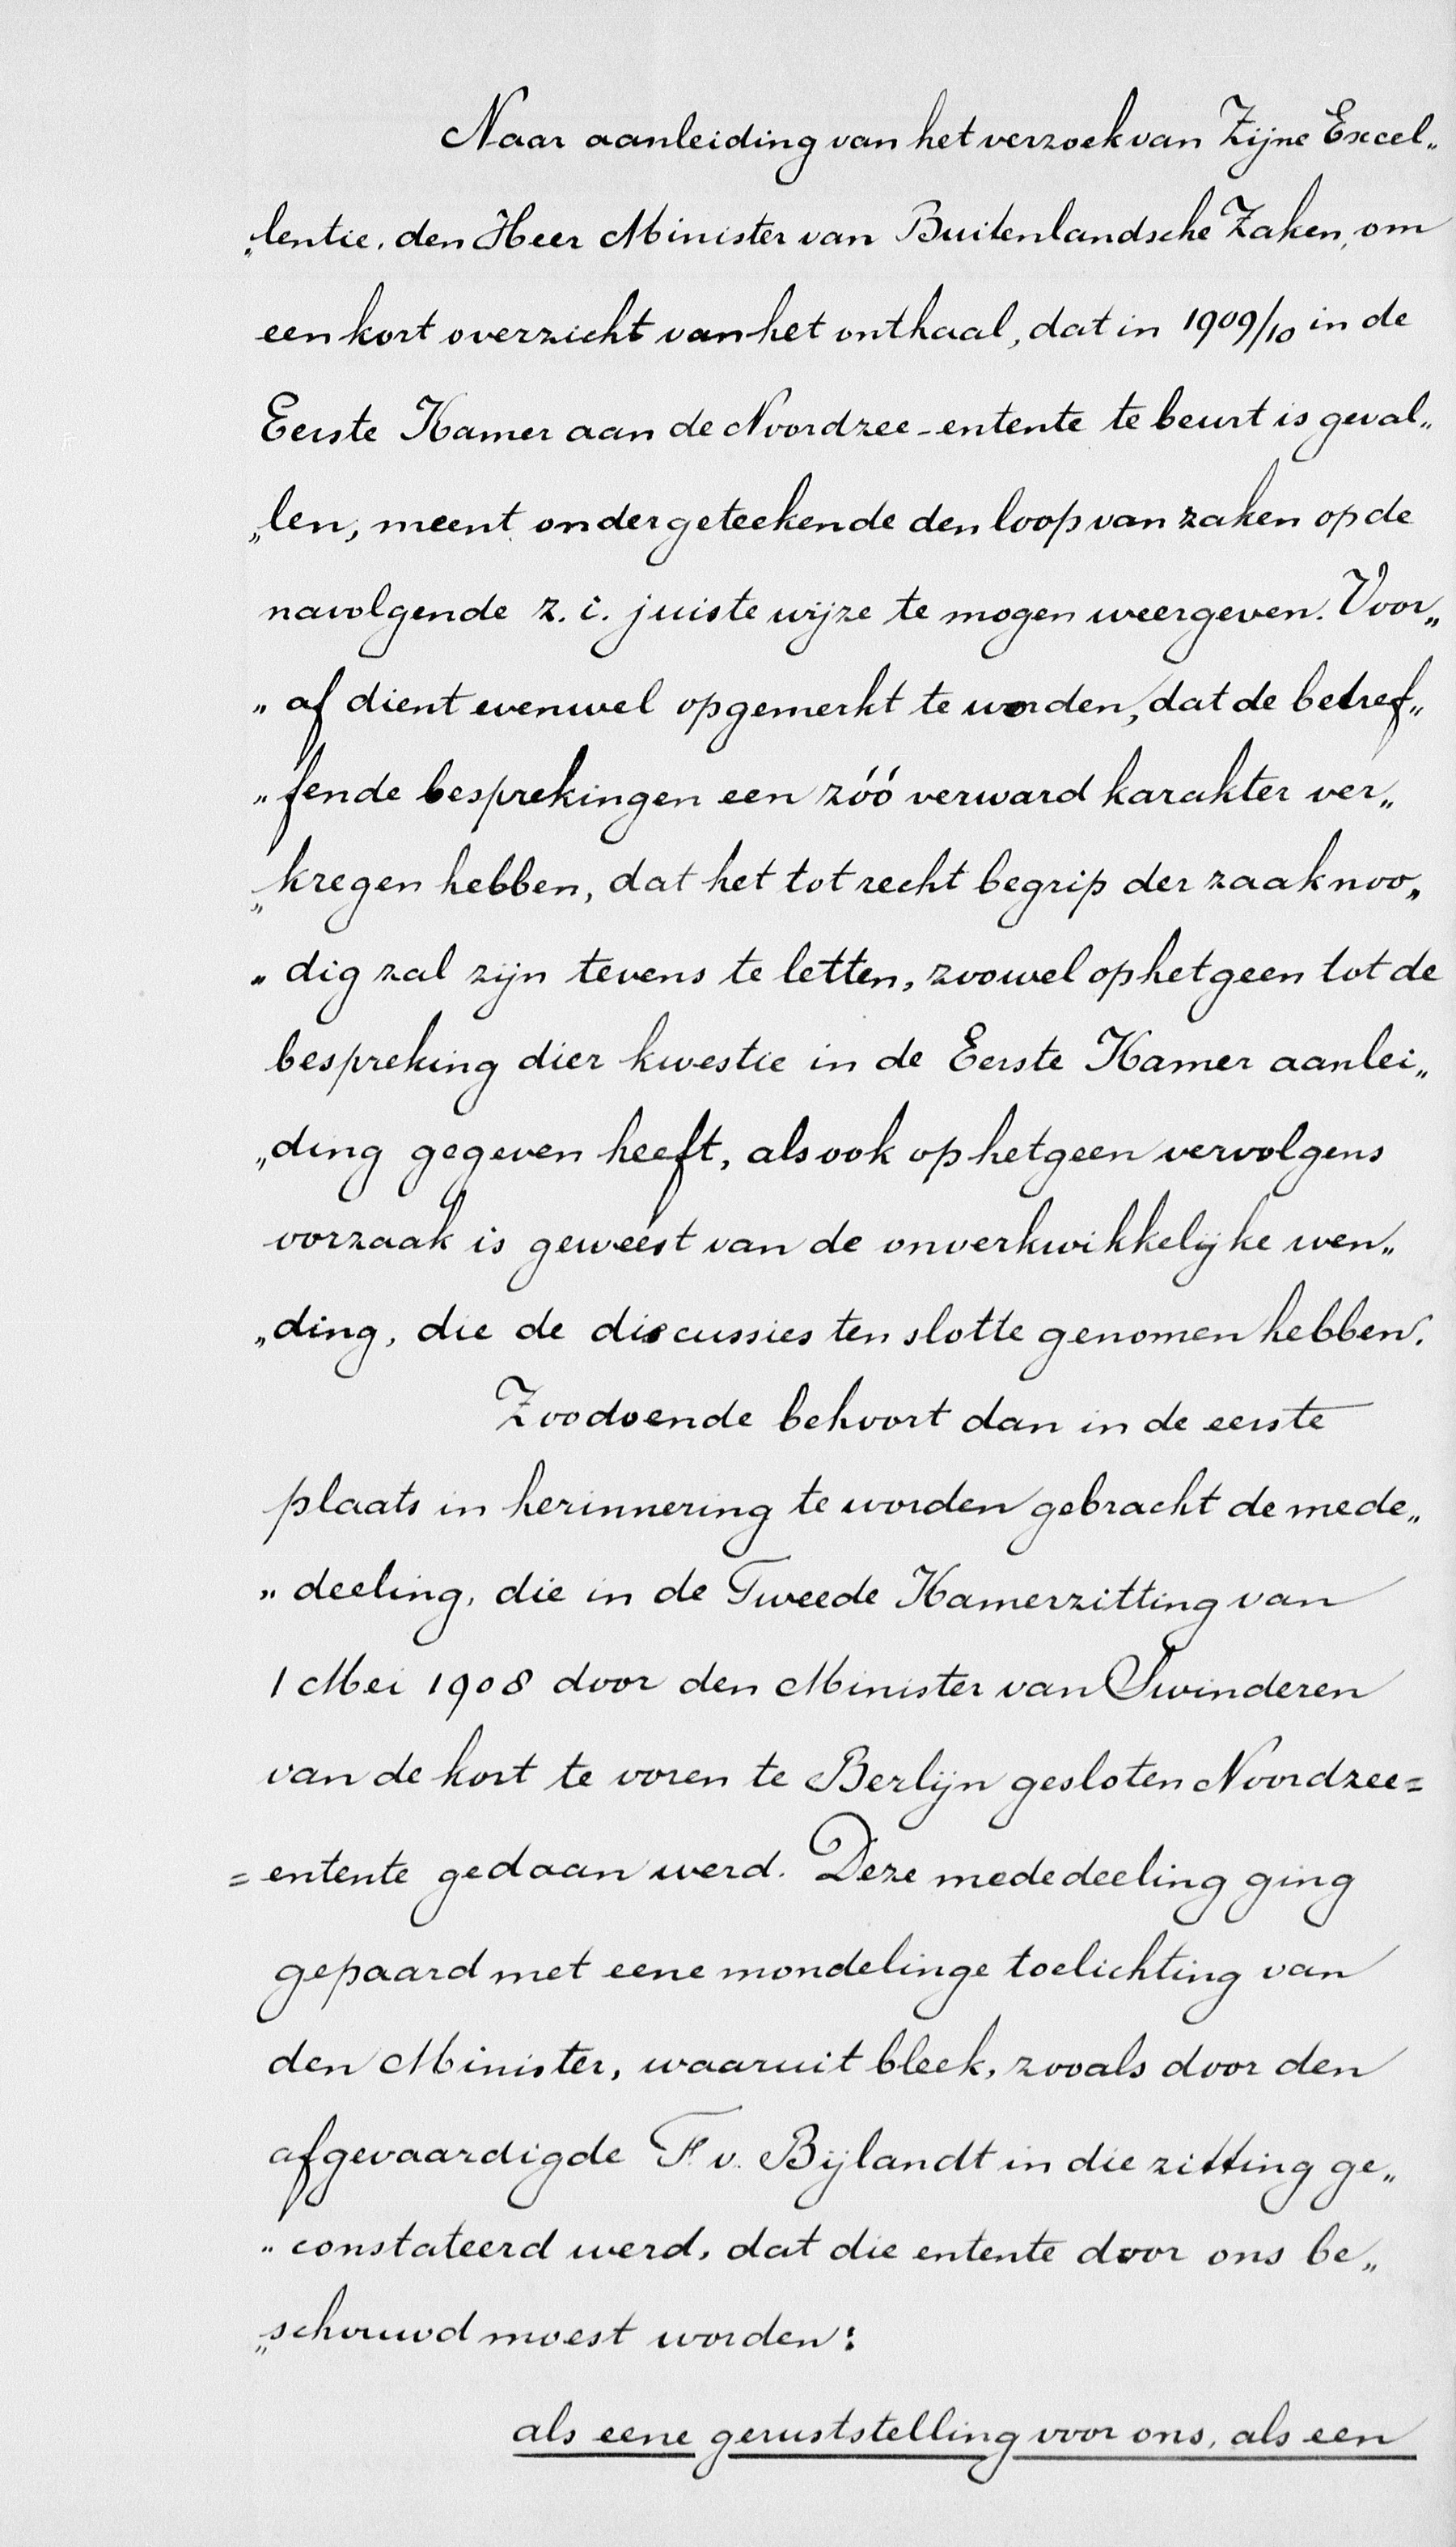 Naar aanleiding van het verzoek van Zijne Excel„
„lentie, den Heer Minister van Buitenlandsche Zaken, om
een kort overzicht van het onthaal, dat in 1909/10 in de
Eerste Kamer aan de Noordzee-entente te beurt is geval„
„len, meent ondergeteekende den loop van zaken op de
navolgende z. i. juiste wijze te mogen weergeven. Voor„
„af dient evenwel opgemerkt te worden, dat de betref„
„fende besprekingen een zóó verward karakter ver„
„kregen hebben, dat het tot recht begrip der zaak noo„
„dig zal zijn tevens te letten, zoowel op hetgeen tot de
bespreking dier kwestie in de Eerste Kamer aanlei„
„ding gegeven heeft, als ook op hetgeen vervolgens
oorzaak is geweest van de onverkwikkelijke wen„
„ding, die de discussies ten slotte genomen hebben.
Zoodoende behoort dan in de eerste
plaats in herinnering te worden gebracht de mede„
„deeling, die in de Tweede Kamerzitting van
1 Mei 1908 door den Minister van Swinderen
van de kort te voren te Berlijn gesloten Noordzee=
=entente gedaan werd. Deze mededeeling ging
gepaard met eene mondelinge toelichting van
den Minister, waaruit bleek, zooals door den
afgevaardigde F. v. Bijlandt in die zitting ge„
„constateerd werd, dat die entente door ons be„
„schouwd moest worden:
als eene geruststelling voor ons, als een